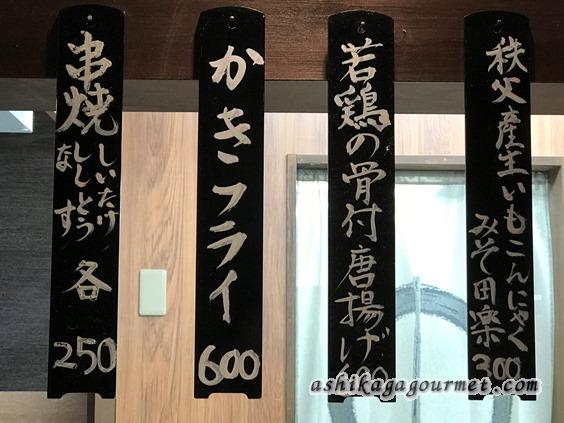 秩父産生いもこんにゃく
みそ田楽
300
若鶏の骨付唐揚げ
かきフライ
600
串焼
しいたけ
ししとう
なす
各
250
ashikagagourmet.com